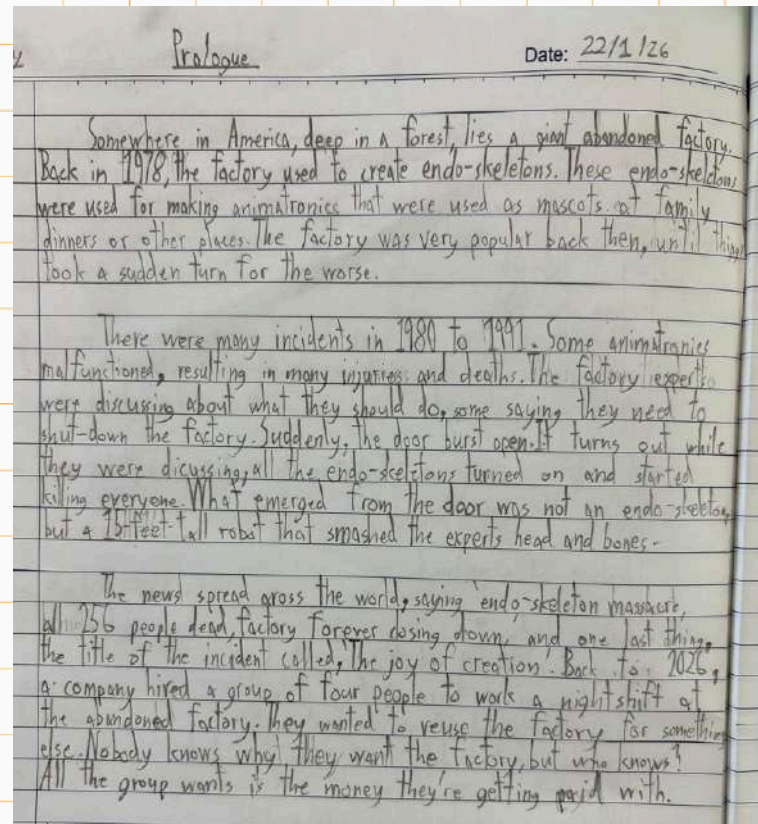 Prologue
Date: 22/1/26
Somewhere in America, deep in a forest, lies a giant abandoned factory.
Back in 1978, the factory used to create endo-skeletons. These endo-skeletons
were used for making animatronics that were used as mascots at family
dinners or other places. The factory was very popular back then, until things
took a sudden turn for the worse.
There were many incidents in 1980 to 1991. Some animatronics
malfunctioned, resulting in many injuries and deaths. The factory experts
were discussing about what they should do, some saying they need to
shut-down the factory. Suddenly, the door burst open. It turns out while
they were dicussing, all the endo-skeletons turned on and started
killing everyone. What emerged from the door was not an endo-skeleton,
but a 15-feet-tall robot that smashed the experts head and bones.
The news spread aross the world, saying 'endo-skeleton massacre,
all 256 people dead, factory forever closing down, and one last thing,
the title of the incident called, 'The joy of creation'. Back to 2026,
a company hired a group of four people to work a nightshift at
the abandoned factory. They wanted to reuse the factory for something
else. Nobody knows why they want the factory, but who knows?
All the group wants is the money they're getting paid with.